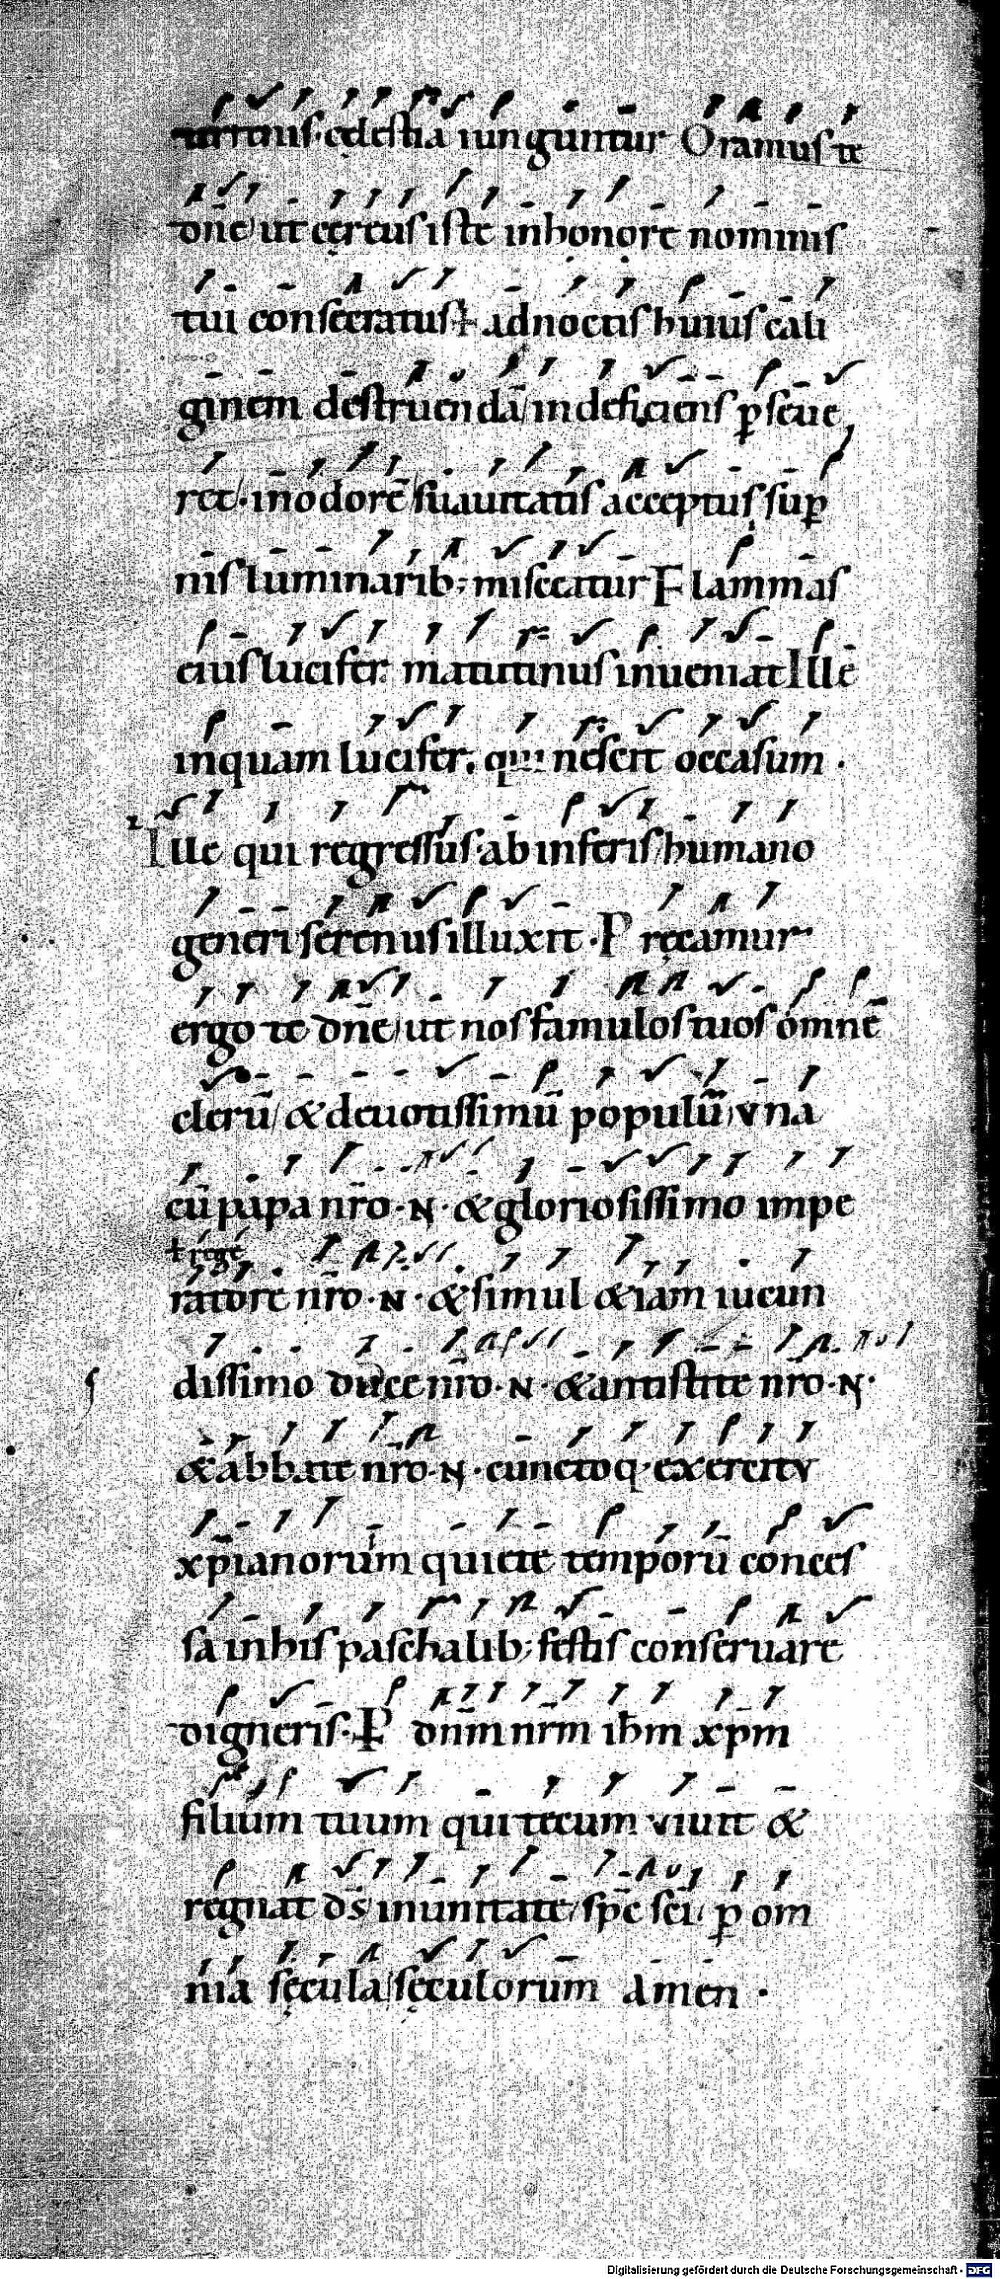 terrenis· cęlestia iunguntur Oramus te
dn̄e/ ut cęreus iste in honorę nominis
tui consecratus ad noctis huius cali
ginem destruendā/ indeficiens p̲seue
ret· in odorē suauitatis acceptus sup̲
nis luminarib; misceatur Flammas
eius lucifer matutinus inueniat Ille
inquam lucifer· qui nescit occasum ·
Ille qui regressus· ab inferis/ humano
generi/ serenus illuxit · Pręcamur
ergo te dn̄e/ ut nos famulos tuos omnē
clerū/ & deuotissimū populū/ vna
cū papa nr̄o · N · & gloriosissimo impe
ł regē
ratore nr̄o · N · & simul & iam iucun
dissimo duce nr̄o · N · & antistite nr̄o · N ·
& abbate nr̄o · N · cunctoq· exercitv
xp̄ianorum quiete temporū conces
sa in his paschalib; festis conseruare
digneris · P dn̄m nrm ihm xp̄m
filium tuum qui tecum viuit &
regnat ds̄ in unitate/ sp̄c sc̄i/ p̲ om
nia sęcula/ sęculorum Amen ·
Digitalisierung gefördert durch die Deutsche Forschungsgemeinschaft - DFG